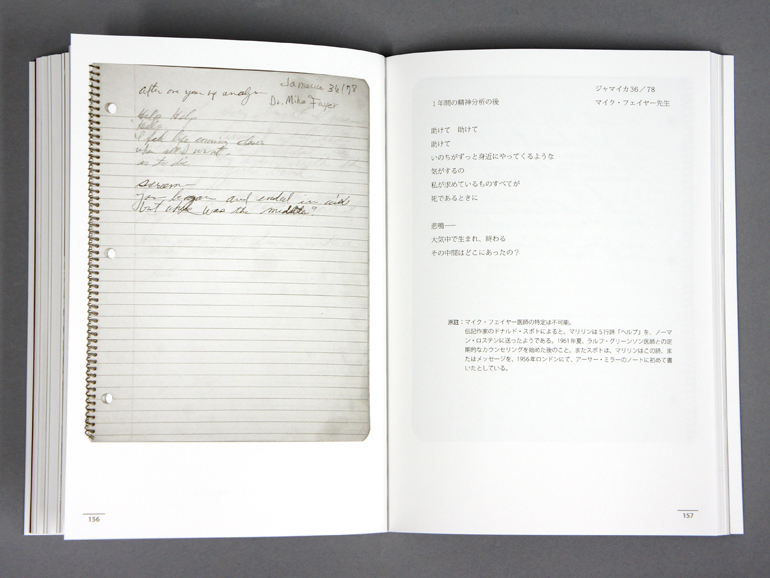 After one year of analysis
Jamaica 36/78
Dr. Mike Fayer
Help Help
Help
I feel life coming closer
when all I want
is to die
Scream—
You began and ended in air
but where was the middle?
156
ジャマイカ36/78
1年間の精神分析の後
マイク・フェイヤー先生
助けて 助けて
助けて
いのちがずっと身近にやってくるような
気がするの
私が求めているものすべてが
死であるときに
悲鳴——
大気中で生まれ、終わる
その中間はどこにあったの?
原註:マイク・フェイヤー医師の特定は不可能。
伝記作家のドナルド・スポトによると、マリリンは5行詩「ヘルプ」を、ノーマ
ン・ロステンに送ったようである。1961年夏、ラルフ・グリーンソン医師との定
期的なカウンセリングを始めた後のこと。またスポトは、マリリンはこの詩、ま
たはメッセージを、1956年ロンドンにて、アーサー・ミラーのノートに初めて書
いたとしている。
157